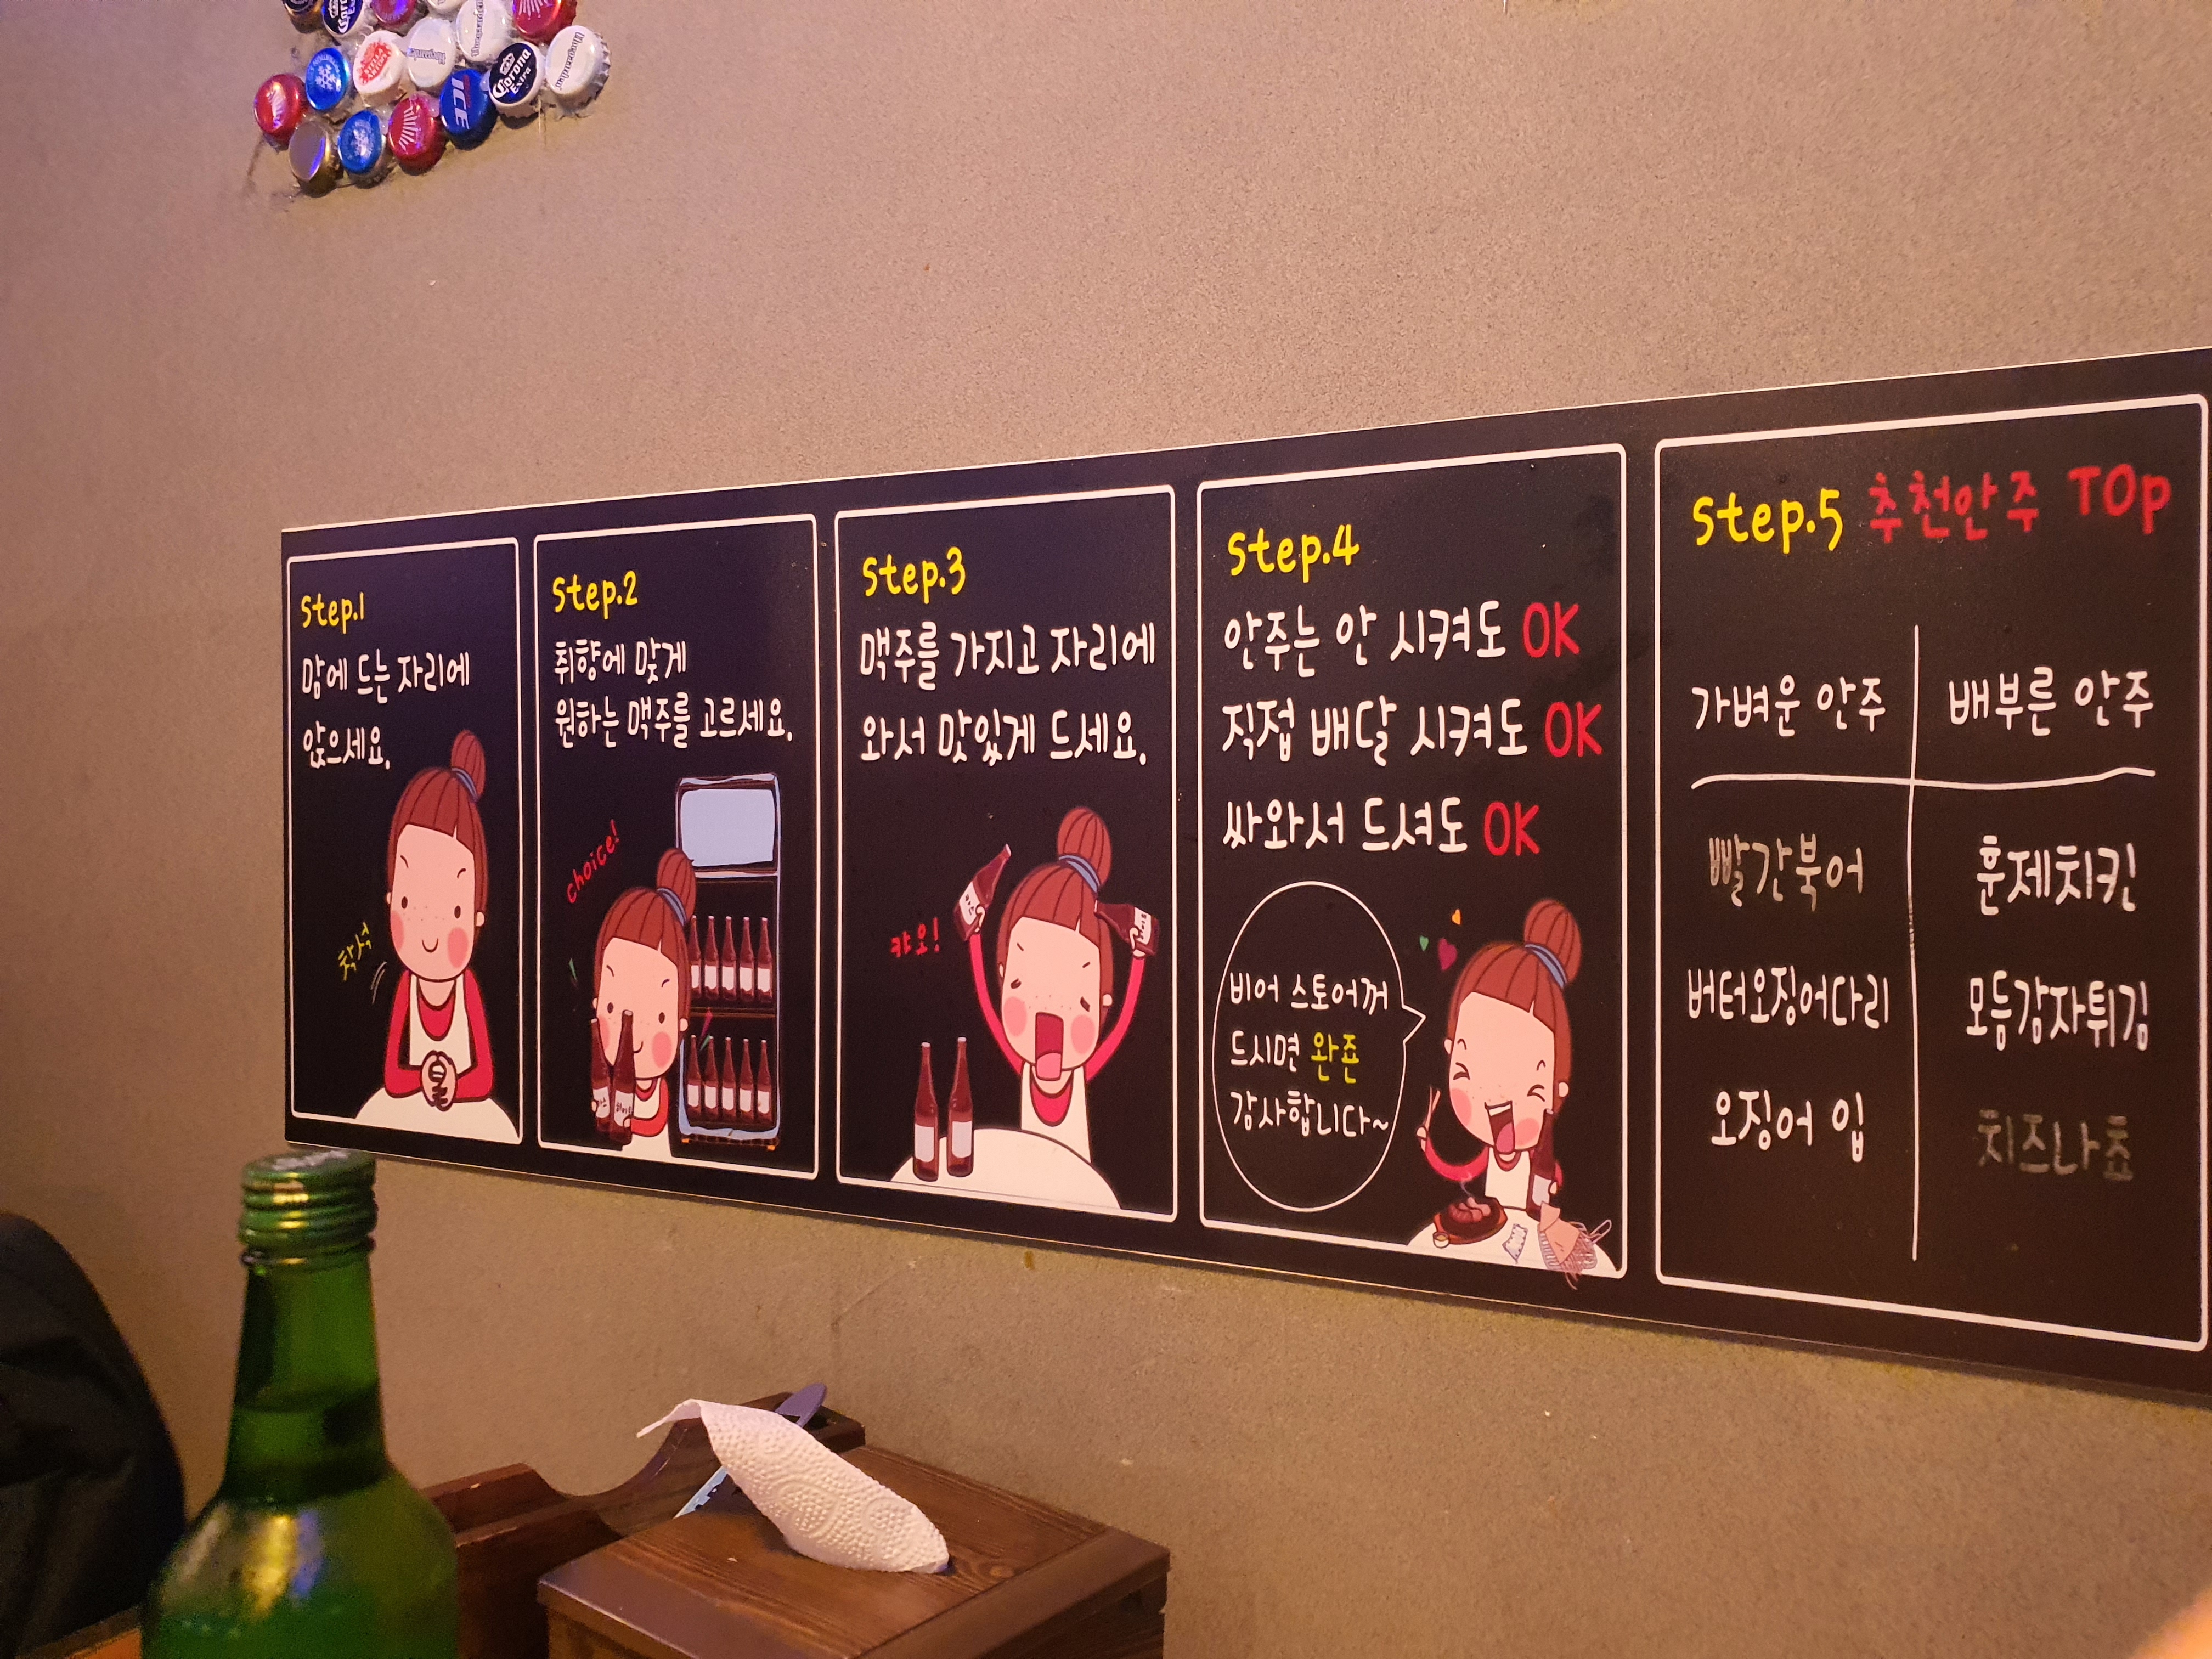 Corona
Extra
Hoegaarden
Hoegaarden
Hoegaarden
STELLA
ARTOIS
ICE
Corona
Extra
Step.1
맘에 드는 자리에
앉으세요.
착석
Step.2
취향에 맞게
원하는 맥주를 고르세요.
choice!
Step.3
맥주를 가지고 자리에
와서 맛있게 드세요.
캬오!
Step.4
안주는 안 시켜도 OK
직접 배달 시켜도 OK
싸와서 드셔도 OK
비어 스토어꺼
드시면 완죤
감사합니다~
Step.5 추천안주 TOp
가벼운 안주
배부른 안주
빨간북어
훈제치킨
버터오징어다리
모듬감자튀김
오징어 입
치즈나쵸